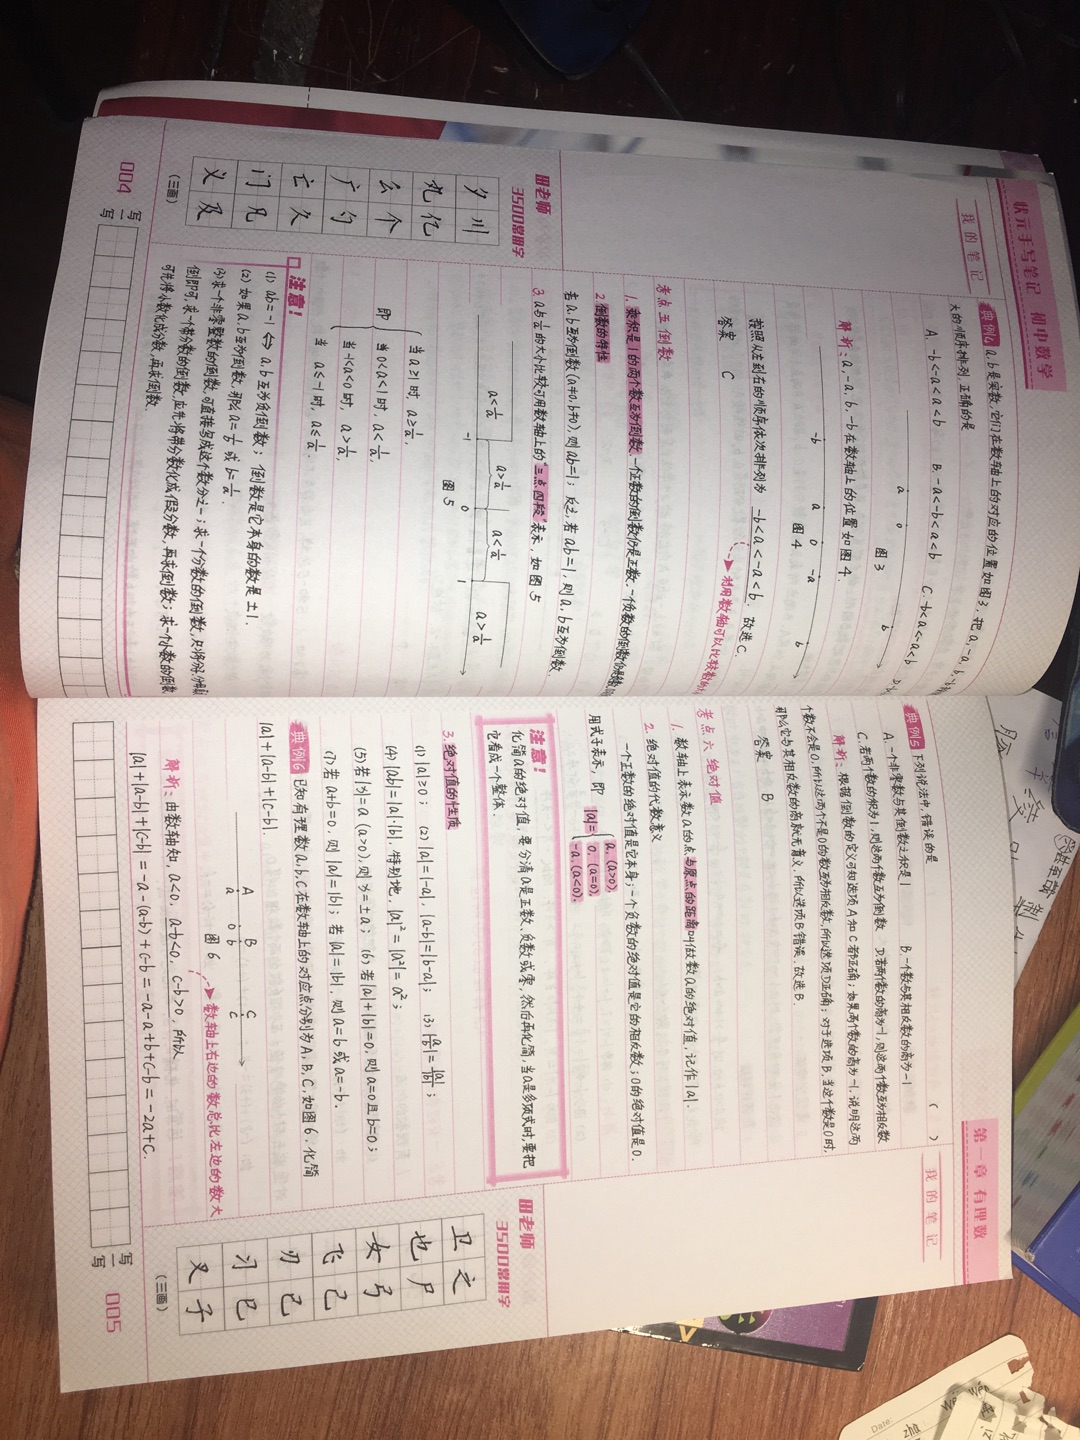 状元手写笔记 初中数学
我的笔记
典例4 a,b是实数,它们在数轴上的对应的位置如图3,把a,-a,b,
大的顺序排列,正确的是
A. -b<-a<a<b B. -a<-b<a<b C. -b<a<-a<b
a 0 b
图3
解析:a,-a,b,-b在数轴上的位置如图4.
-b a 0 -a b
图4
按照从左到右的顺序依次排列为 -b<a<-a<b. 故选C.
答案 C
利用数轴可以比较数的
考点五 倒数
1. 乘积是1的两个数互为倒数,一个正数的倒数仍是正数,一个负数的倒数仍是
2. 倒数的特性
若a,b互为倒数(a≠0,b≠0),则ab=1;反之,若ab=1,则a,b互为倒数.
3. a与1/a的大小比较可用数轴上的“三点四段”表示,如图5
a<1/a a>1/a a<1/a a>1/a
-1 0 1
图5
当a≥1时, a≥1/a,
即 当0<a<1时, a<1/a,
当-1<a<0时, a>1/a,
当 a≤-1时, a≤1/a.
注意!
(1) ab=-1⇔a,b互为负倒数;倒数是它本身的数是±1.
(2) 如果a,b互为倒数,那么a=1/b或b=1/a.
(3) 求一个非零整数的倒数,可直接写成这个数分之一;求一个分数的倒数,只将分子分母
倒即可;求一个带分数的倒数,应先将带分数化成假分数,再求倒数;求一个小数的倒数
可先将小数化成分数,再求倒数.
田老师
3500常用字
夕 川
丸 亿
么 个
广 勺
亡 久
门 凡
义 及
(三画)
写一写
004
第一章 有理数
我的笔记
典例5 下列说法中,错误的是 ( )
A. 一个非零数与其倒数之积是1 B. 一个数与其相反数的商为-1
C. 若两个数的积为1,则这两个数互为倒数 D. 若两个数的商为-1,则这两个数互为相反数
解析:根据倒数的定义可知选项A和C都正确;如果两个数的商为-1,说明这两
个数不会是0,所以这两个不是0的数互为相反数,所以选项D正确;对于选项B,当这个数是0时,
那么它与其相反数的商就无意义,所以选项B错误,故选B.
答案 B
考点六 绝对值
1. 数轴上表示数a的点与原点的距离叫做数a的绝对值,记作|a|.
2. 绝对值的代数意义
一个正数的绝对值是它本身;一个负数的绝对值是它的相反数;0的绝对值是0.
用式子表示,即 |a|= a, (a>0),
0, (a=0),
-a, (a<0).
注意!
化简a的绝对值,要分清a是正数、负数或零,然后再化简,当a是多项式时,要把
它看成一个整体.
3. 绝对值的性质
(1) |a|≥0; (2) |a|=|-a|, |a-b|=|b-a|; (3) |a/b|=|a|/|b|;
(4) |ab|=|a|·|b|, 特别地, |a|²=|a²|=a²;
(5) 若|x|=a(a>0),则x=±a; (6) 若|a|+|b|=0,则a=0且b=0;
(7) 若a+b=0,则|a|=|b|;若|a|=|b|,则a=b或a=-b.
典例6 已知有理数a,b,c在数轴上的对应点分别为A,B,C,如图6,化简
|a|+|a-b|+|c-b|.
A B C
a 0 b c
图6
数轴上右边的数总比左边的数大
解析:由数轴知, a<0, a-b<0, c-b>0, 所以
|a|+|a-b|+|c-b|=-a-(a-b)+c-b=-a-a+b+c-b=-2a+c.
田老师
3500常用字
卫 之
也 尸
女 弓
飞 己
刃 已
习 巳
叉 子
(三画)
写一写
005